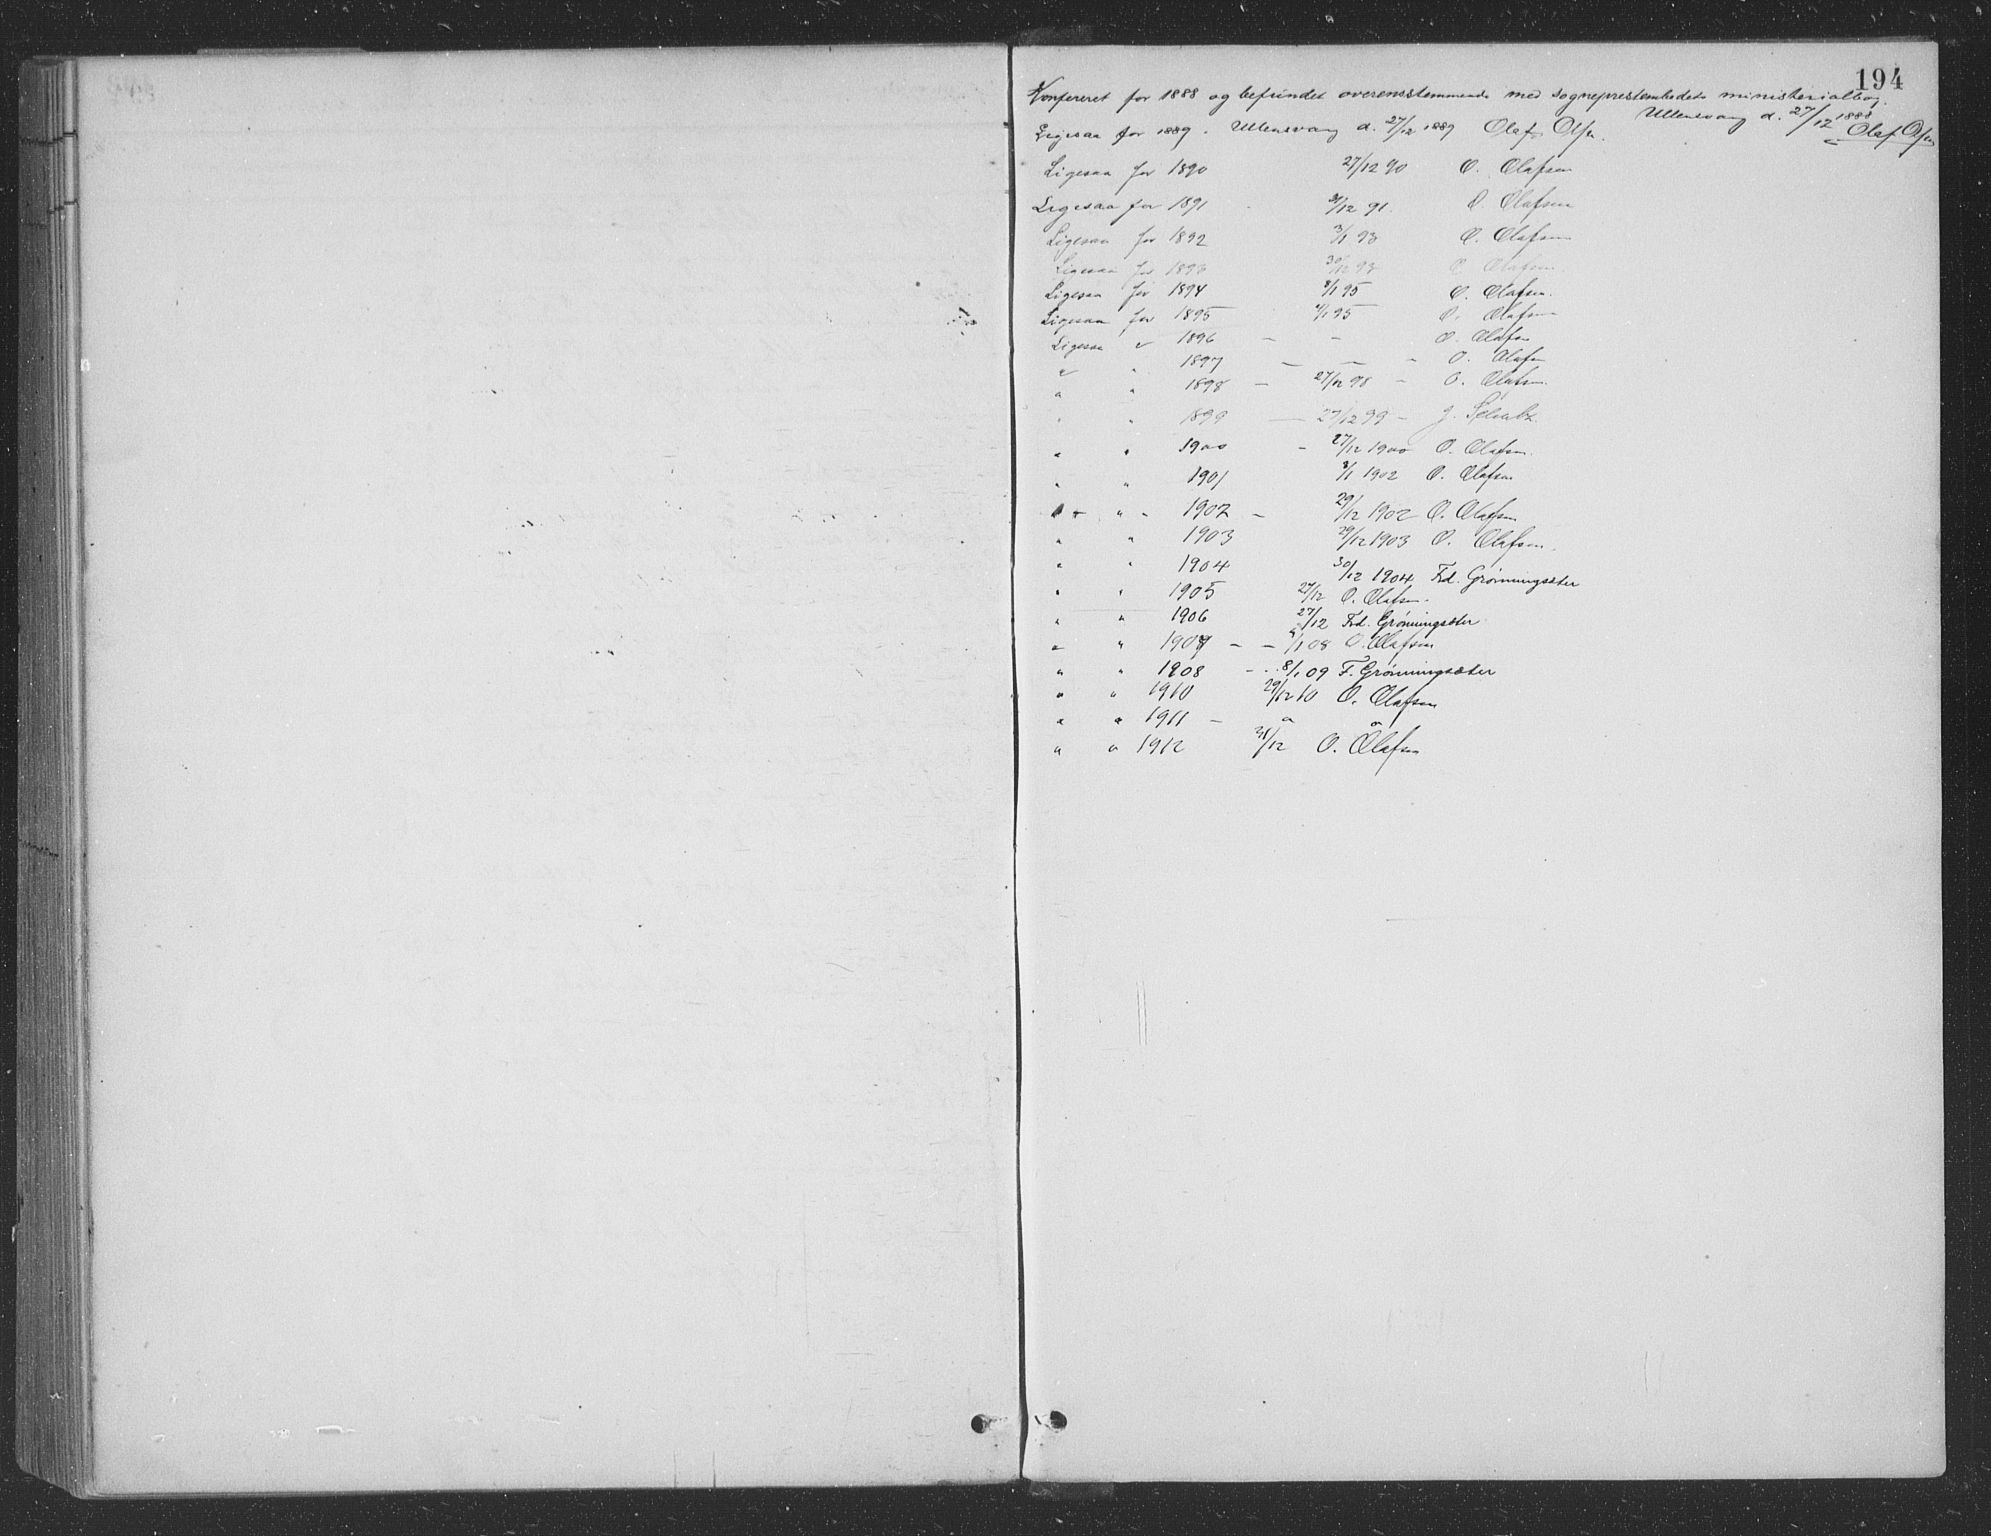 194
Konfereret for 1888 og befundet overensstemmende med sogneprestembedets ministerialbog.
Ullensvang d. 27/12 1888
Olaf Olsen
Ligesaa for 1889. Ullensvang d. 27/12 1889 Olaf Olsen.
Ligesaa for 1890 27/12 90 O. Olafsen
Ligesaa for 1891 31/12 91. O. Olafsen
Ligesaa for 1892 3/1 93 O. Olafsen
Ligesaa for 1893 30/12 93 O Olafsen
Ligesaa for 1894 /1 95 O. Olafsen.
Ligesaa for 1895 /1 95 O. Olafsen
Ligesaa " 1896 - - O. Olafsen
" " 1897 - - " O. Olafsen
" " 1898 - 27/12 98 - O. Olafsen.
" " 1899 - 27/12 99 - J.
" " 1900 - 27/12 1900 O. Olafsen.
" " 1901 /1 1902 O. Olafsen
" " - 1902 - 29/12 1902 O. Olafsen
" " 1903 29/12 1903 O. Olafsen.
" " 1904 30/12 1904 Frd. Grønningsæter
" " 1905 27/12 O. Olafsen.
" " 1906 27/12 Frd. Grønningsæter.
" " 1907 - - /1 08 O. Olafsen
" " 1908 - - 8/1 09 F. Grønningsæter
" " 1910 29/12 10 O. Olafsen
" " 1911 - " "
" " 1912 31/12 O. Olafsen